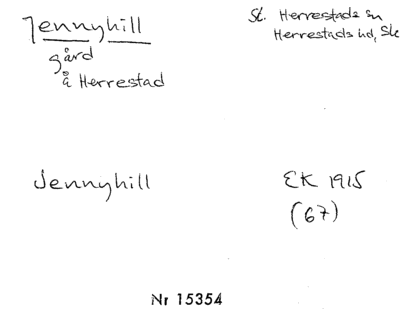 Jennyhill
gård
å Herrestad
St. Herrestads sn
Herrestads hd, Sk
Jennyhill
EK 1915
(67)
Nr 15354